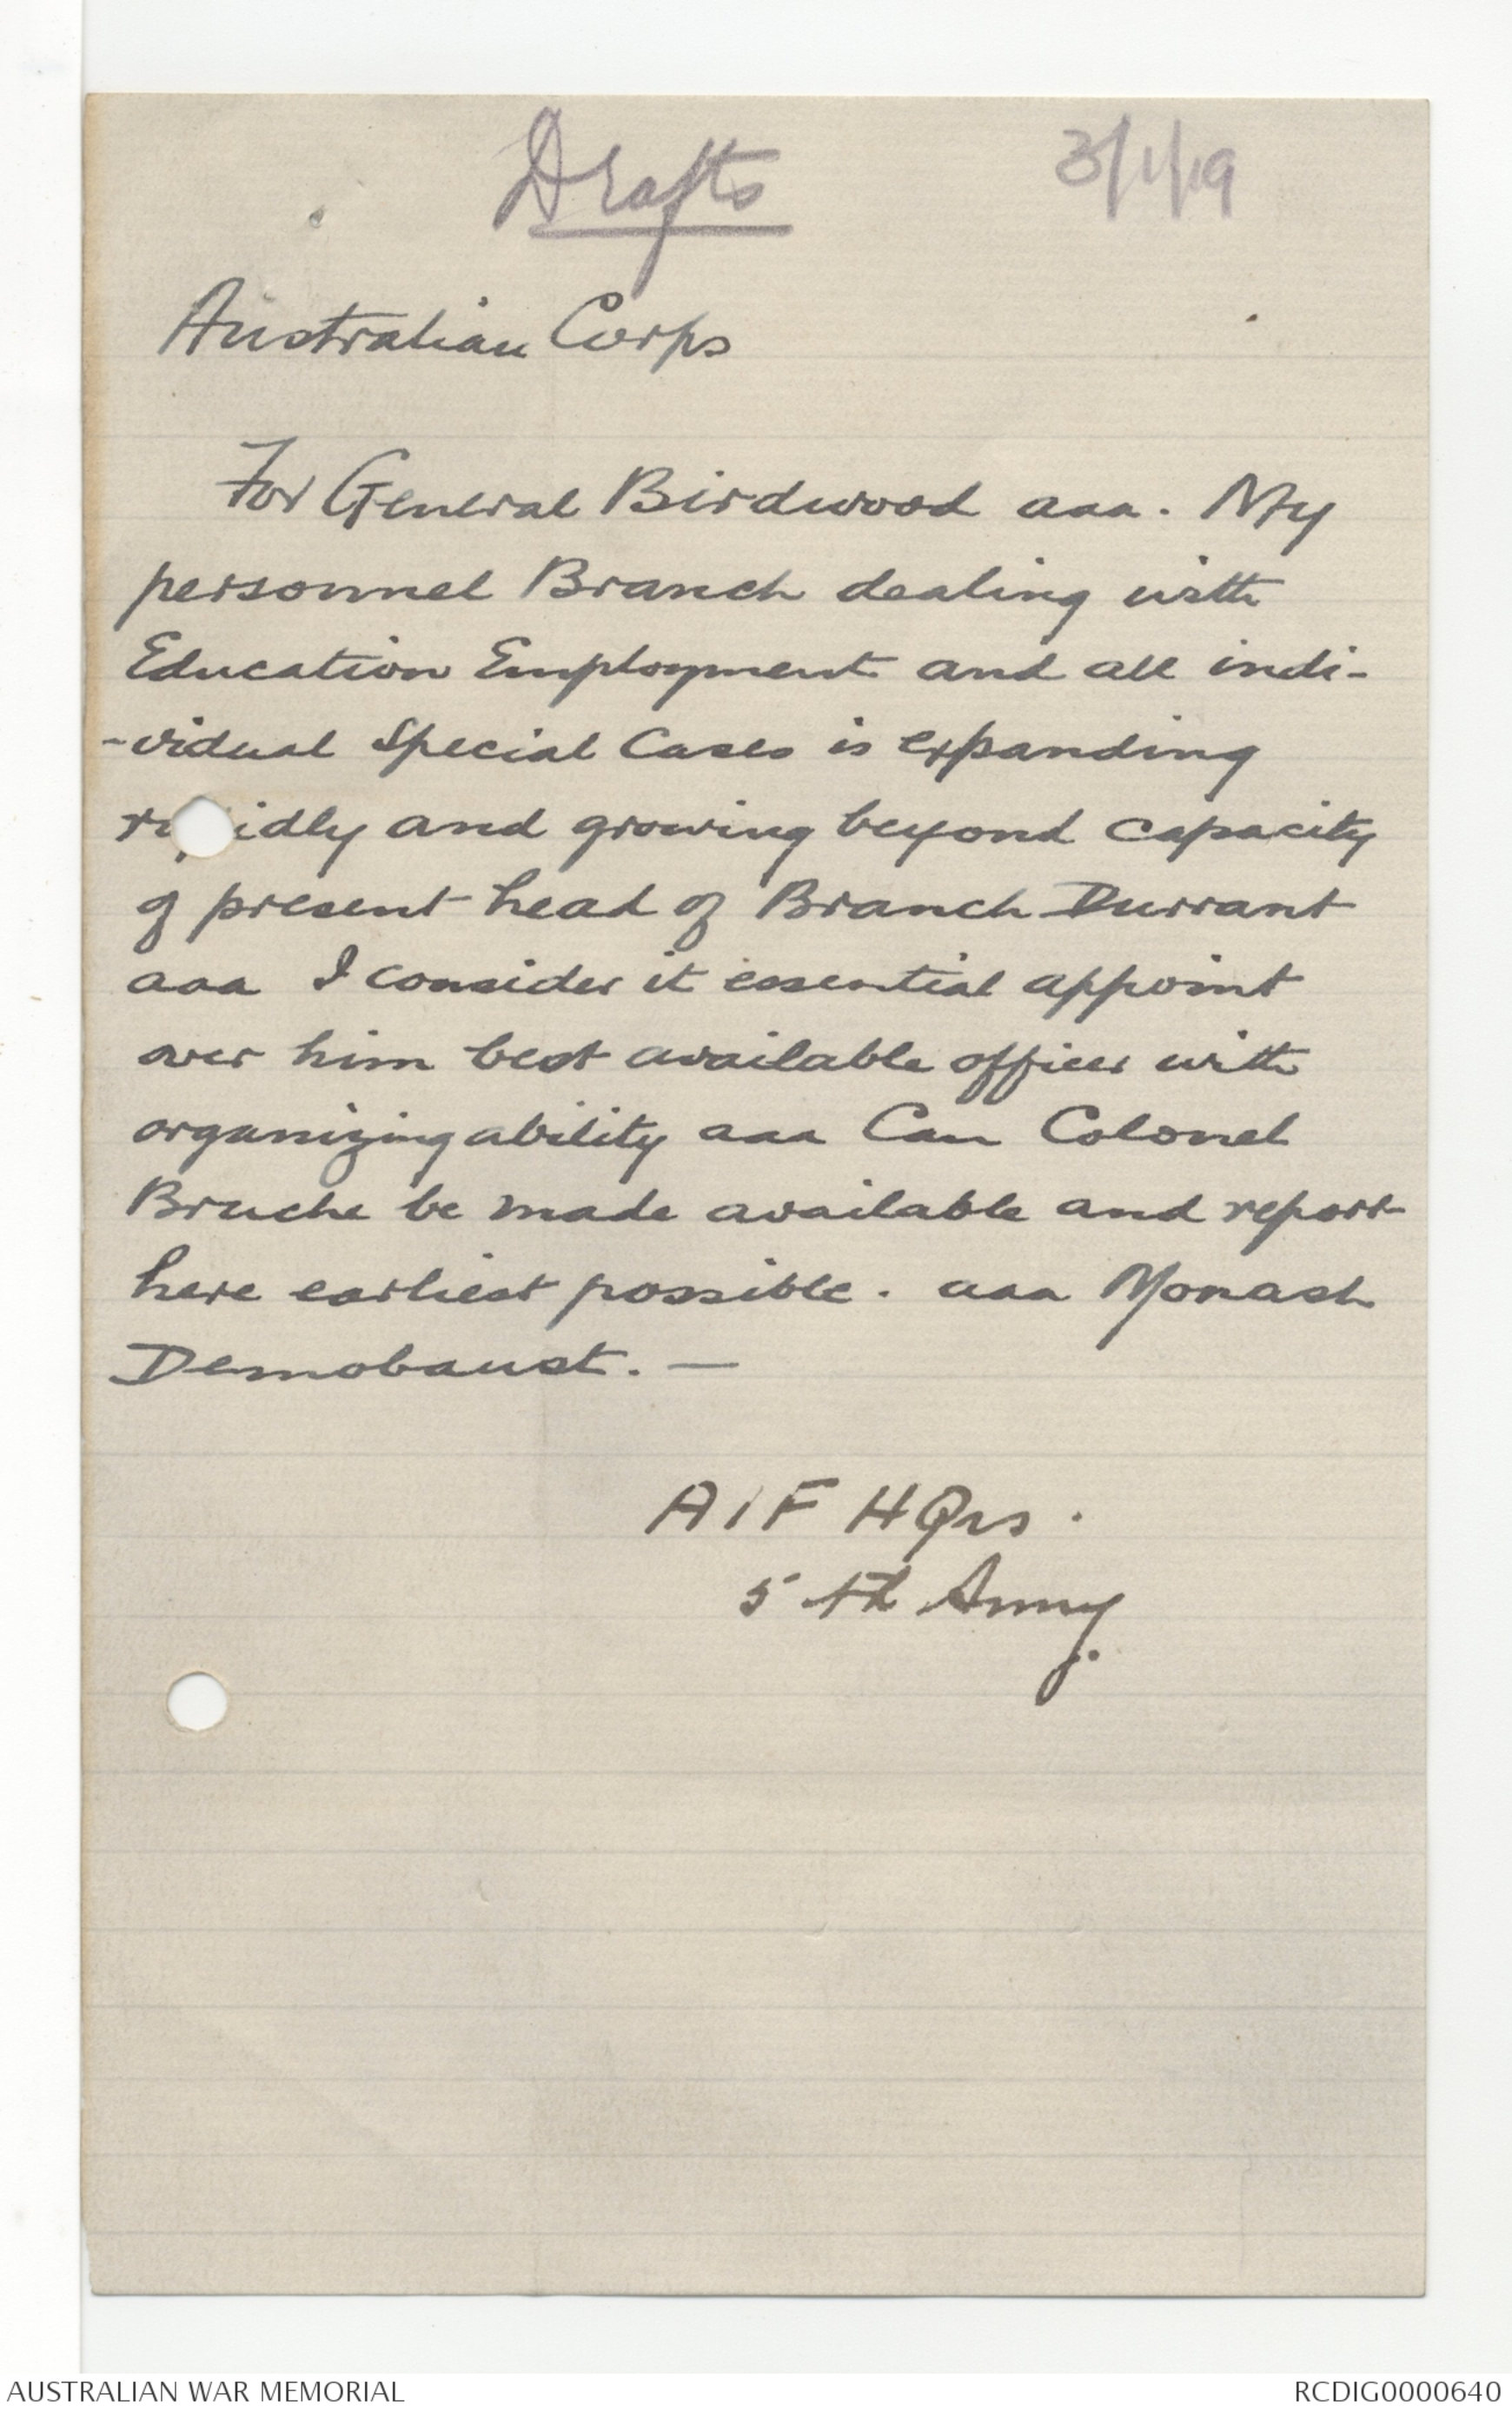 Drafts 3/1/19
Australian Corps
For General Birdwood aaa. My
personnel Branch dealing with
Education Employment and all indi-
-vidual Special Cases is expanding
ra idly and growing beyond capacity
of present head of Branch Durrant
aaa I consider it essential appoint
over him best available officer with
organizing ability aaa Can Colonel
Bruche be made available and report
here earliest possible. aaa Monash
Demobaust. —
AIF HQrs.
5th Army.
AUSTRALIAN WAR MEMORIAL RCDIG0000640